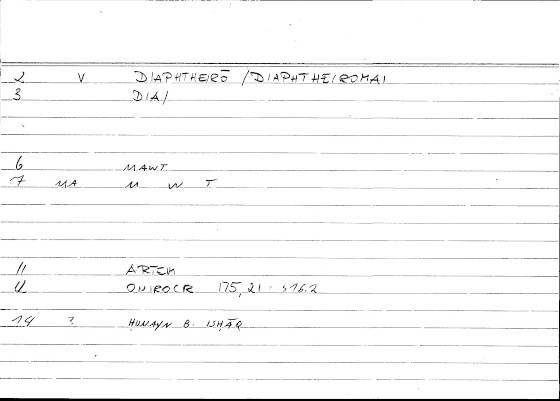 2 V DIAPHTHEIRŌ / DIAPHTHEIROMAI
3 DIA/
6 MAWT
7 MA M W T
11 ARTEM
12 ONIROCR 175,21 : 316.2
14 ? HUNAYN B. ISHĀQ